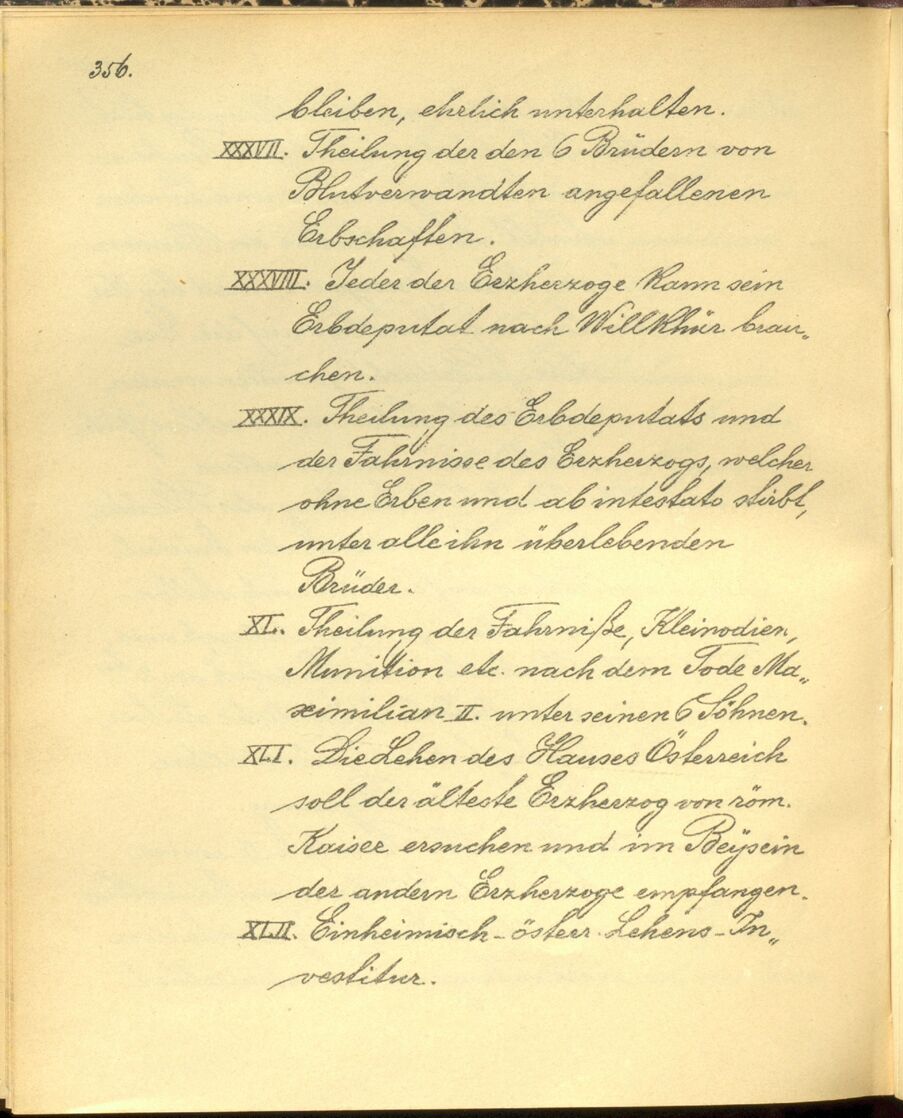 356.
bleiben, ehrlich unterhalten.
XXXVII. Theilung der den 6 Brüdern von
Blutverwandten angefallenen
Erbschaften.
XXXVIII. Jeder der Erzherzoge kann sein
Erbdeputat nach Willkhür brau„
chen.
XXXIX. Theilung des Erbdeputats und
der Fahrnisse des Erzherzogs, welcher
ohne Erben und ab intestato stirbt,
unter alle ihn überlebenden
Brüder.
XL. Theilung der Fahrniße, Kleinodien,
Munition etc. nach dem Tode Ma„
ximilian II. unter seinen 6 Söhnen.
XLI. Die Lehen des Hauses Österreich
soll der älteste Erzherzog von röm.
Kaiser ersuchen und im Beÿsein
der andern Erzherzoge empfangen.
XLII. Einheimisch-österr. Lehens-In„
vestitur.